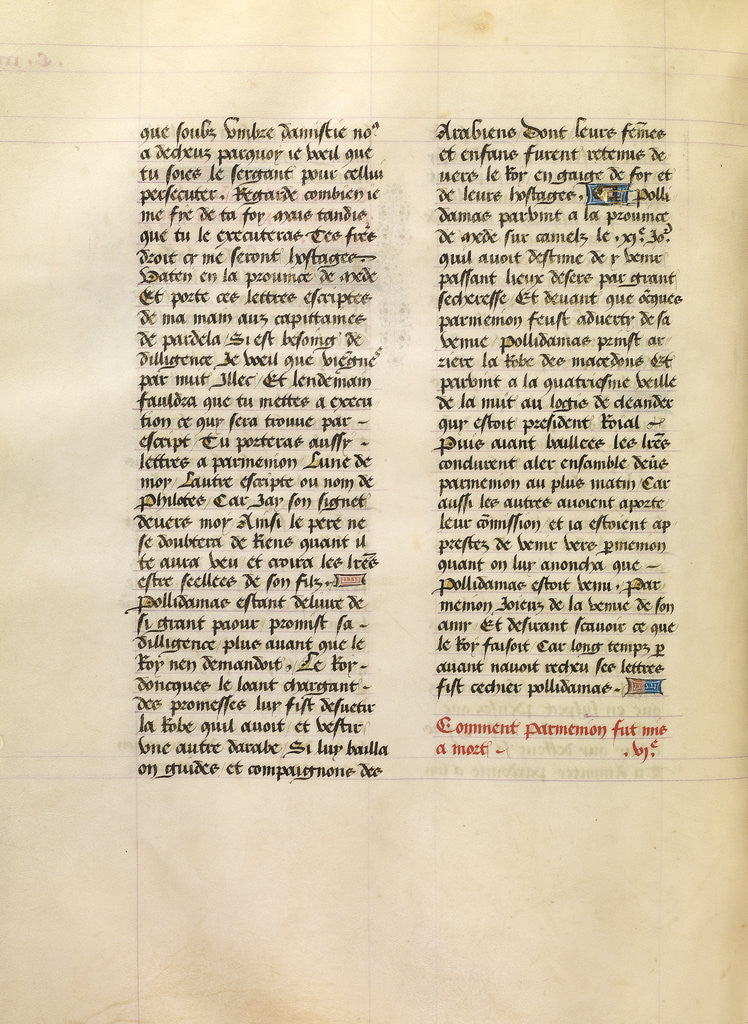 que soubz vmbre damistie noꝰ
a decheuz parquoy ie vveil que
tu soies le sergant pour cellui
persecuter. Regarde combien ie
me fie de ta foy mais tandis
que tu le executeras Tes fres
droit cy me seront hostages.
Vaten en la prouince de mede
Et porte ces lettres escriptes
de ma main aux capittaines
de pardela Si est besoing de
dilligence Je vveil que viegne
par nuit Illec Et lendemain
fauldra que tu mettes a execu
tion ce quy sera trouue par –
escript Tu porteras aussy –
lettres a parmenion Lune de
moy Lautre escripte ou nom de
Philotes Car Jay son signet
deuers moy Ainsi le pere ne
se doubtera de Riens quant il
te aura veu et croira les lrẽs
estre seellees de son filz.
Pollidamas estant deliure de
si grant paour promist sa –
dilligence plus auant que le
Roy nen demandoit, Le Roy –
doncques le loant chargant –
des promesses luy fist desuetir
la Robe quil auoit et vestir
vne autre darabe Si luy bailla
on guides et compaignons des
Arabiens Dont leurs fẽmes
et enfans furent retenus de
uers le Roy en gaige de foy et
de leurs hostages. Polli
damas paruint a la prouince
de mede sur camelz le .xi.ᵉ Joᵣ
quil auoit destine de y venir
passant lieux desers par grant
secheresse Et deuant que õcques
parmenion feust aduerty de sa
venue Pollidamas prinst ar
riere la Robe des macedons Et
paruint a la quatriesme veille
de la nuit au logis de cleander
quy estoit president Roial –
Puis aiant baillees les lrẽs
conclurent aler ensamble deũs
parmenion au plus matin Car
aussi les autres auoient aporte
leur cõmission et ia estoient ap
prestez de venir vers ꝑmenion
quant on luy anoncha que –
Pollidamas estoit venu. Par
menion Joieux de la venue de son
amy Et desirant scauoir ce que
le Roy faisoit Car long tempz ꝑ
auant nauoit recheu ses lettres
fist cerchier pollidamas.
Comment Parmenion fut mis
a mort – .vi.ᵉ